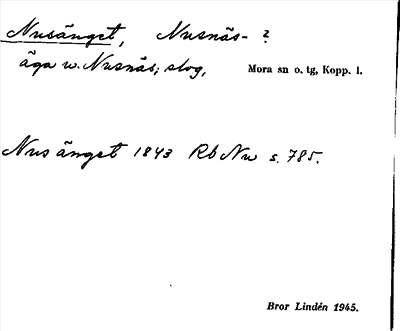 Nusänget, Nusnäs- ?
äga w. Nusnäs; slog,
Mora sn o. tg, Kopp. l.
Nusänget 1843 Rb Nu s. 785.
Bror Lindén 1945.